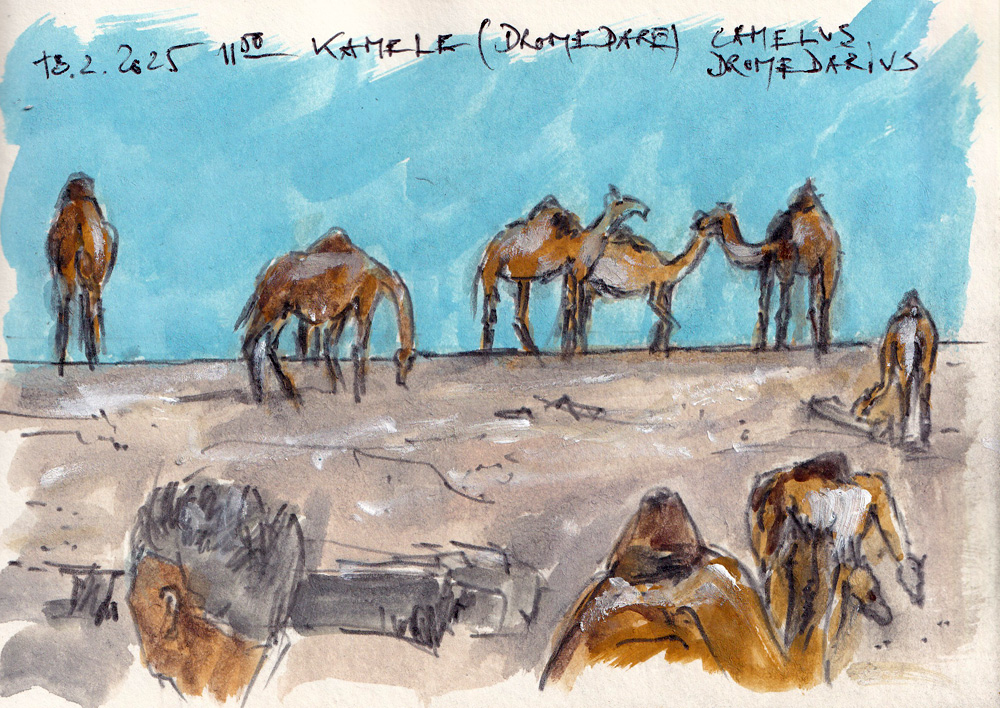 13.2.2025 11⁵⁰ KAMELE (DROMEDARE) CAMELUS
DROMEDARIUS